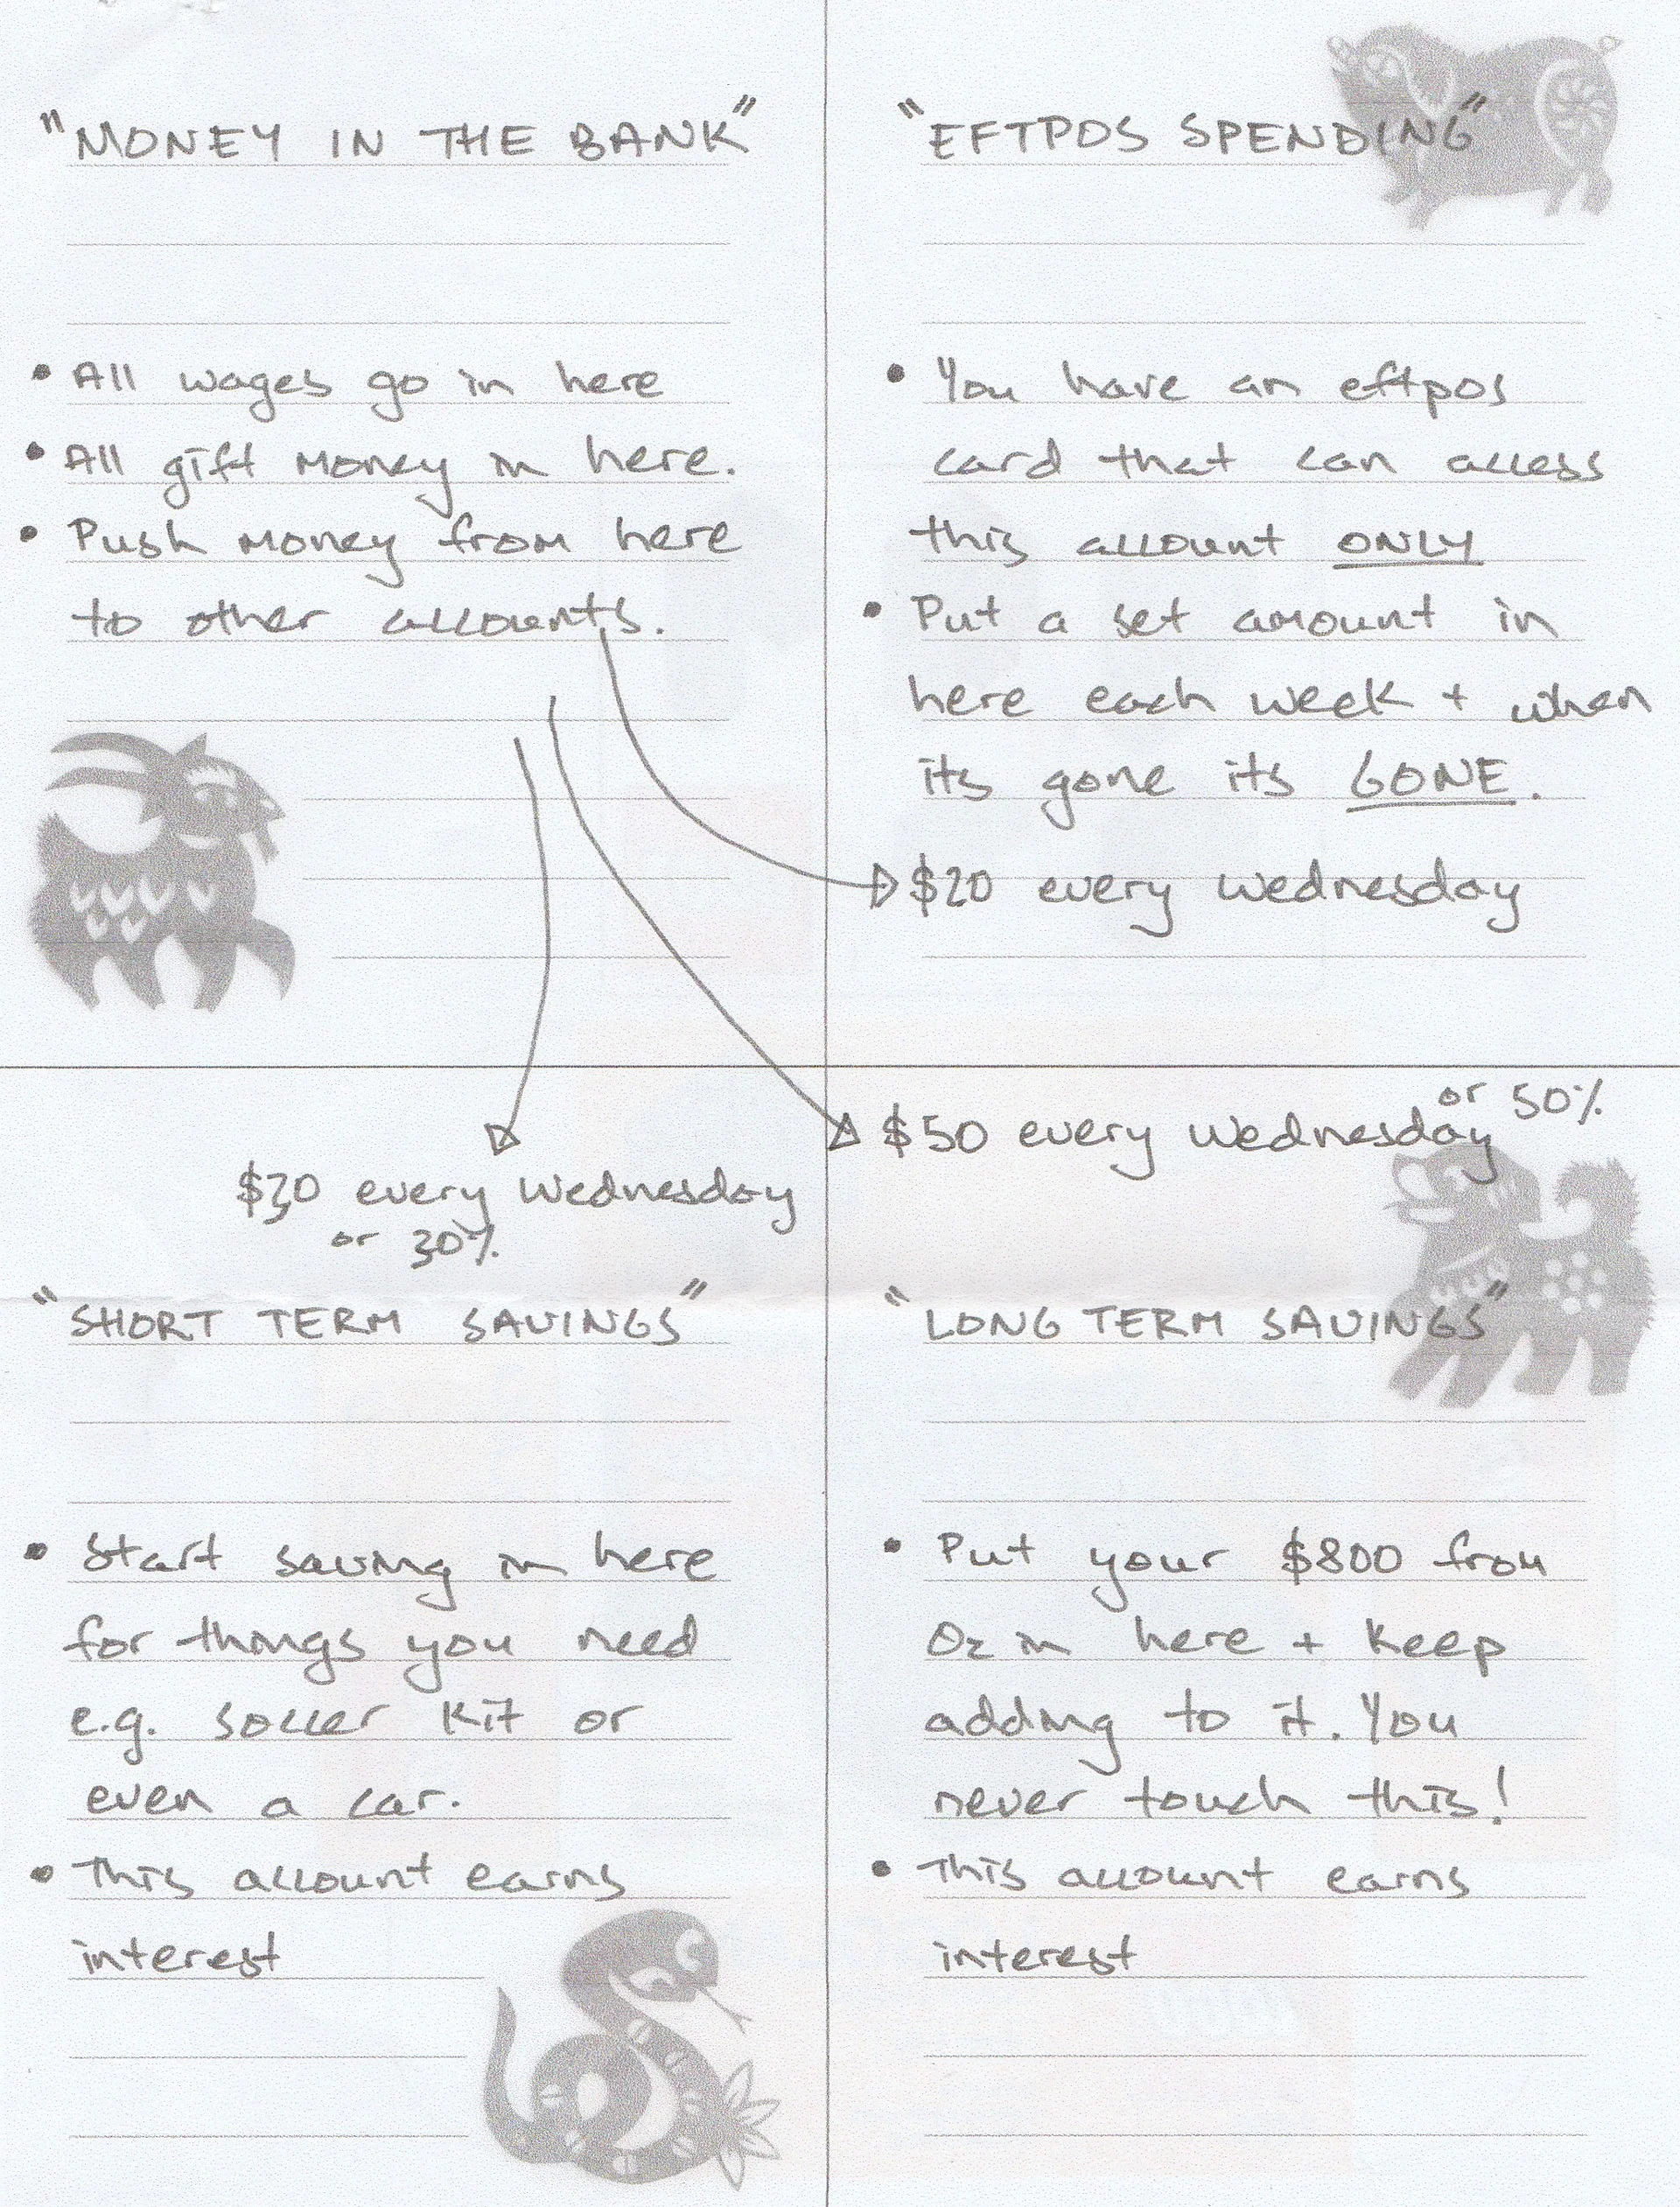 "MONEY IN THE BANK"
• All wages go in here
• All gift money in here.
• Push money from here
to other accounts.
"EFTPOS SPENDING"
• You have an eftpos
card that can access
this account ONLY
• Put a set amount in
here each week + when
its gone its GONE.
$20 every Wednesday
$30 every Wednesday
or 30%
"SHORT TERM SAVINGS"
• Start saving in here
for things you need
e.g. soccer kit or
even a car.
• This account earns
interest
$50 every Wednesday or 50%
"LONG TERM SAVINGS"
• Put your $800 from
Oz in here + keep
adding to it. You
never touch this!
• This account earns
interest